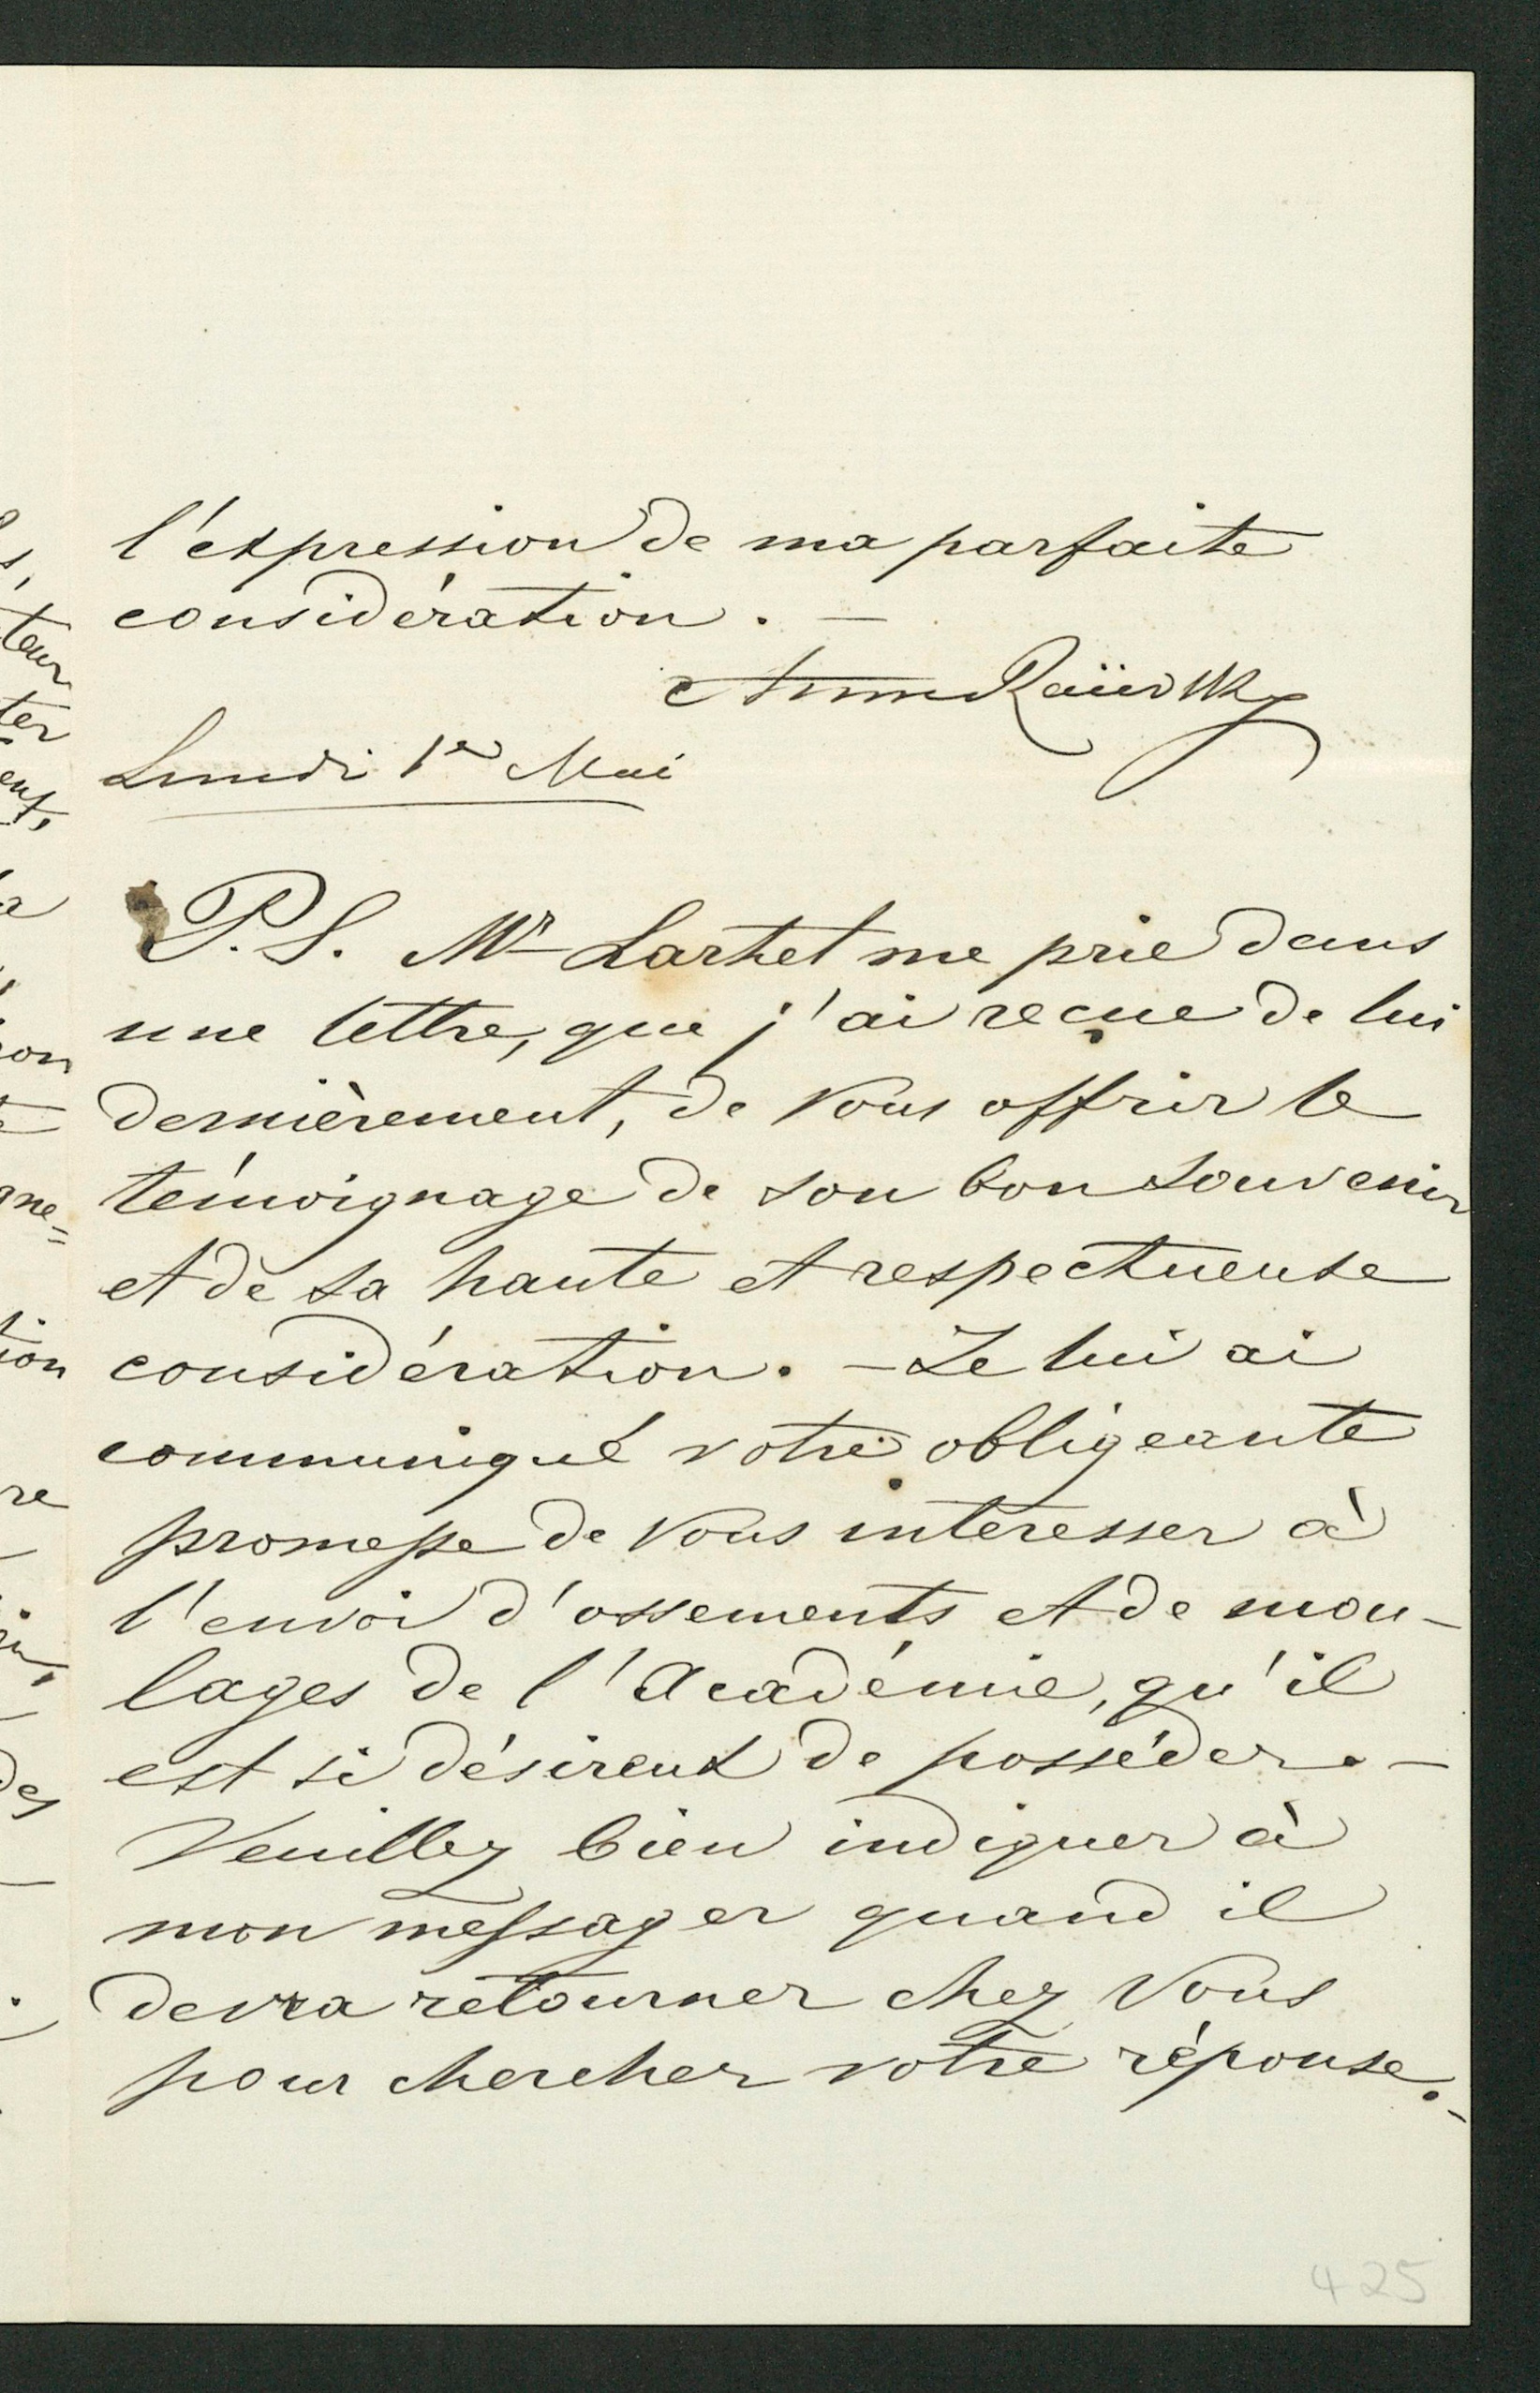 l'expression de ma parfaite
considération. —
Anna Raïevsky
Lundi 1er Mai
P.S. Mr Lartet me prie dans
une lettre, que j'ai reçue de lui
dernièrement, de Vous offrir le
témoignage de son bon souvenir
et de sa haute et respectueuse
considération. — Je lui ai
communiqué votre obligeante
promesse de Vous intéresser à
l'envoi d'ossements et de mou-
lages de l'Académie, qu'il
est si désireux de posséder. —
Veuillez bien indiquer à
mon messager quand il
devra retourner chez Vous
pour chercher votre réponse. -
425